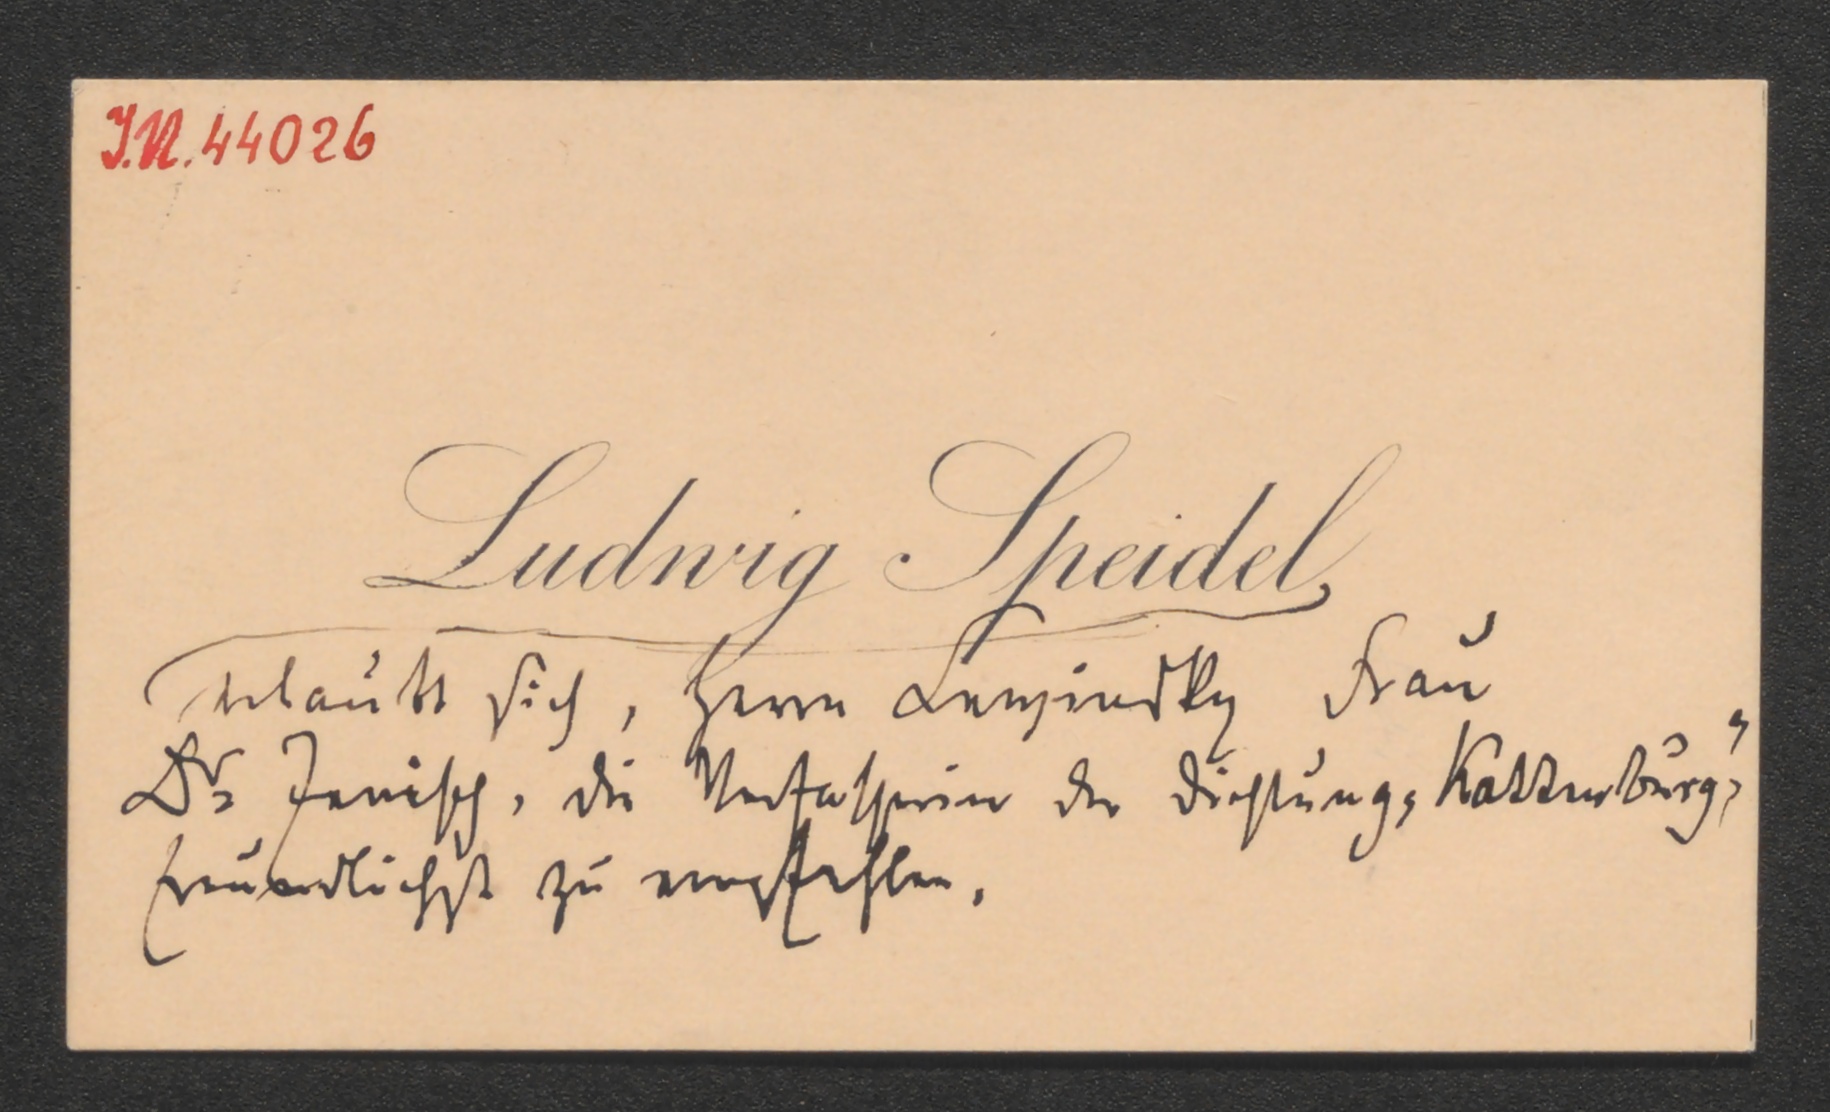 I.N. 44026
Ludwig Speidel
erlaubt sich, Herrn Lewinsky Frau
Dr. Jenisch, die Verfasserin der Dichtung „Kattenburg“,
freundlichst zu empfehlen.